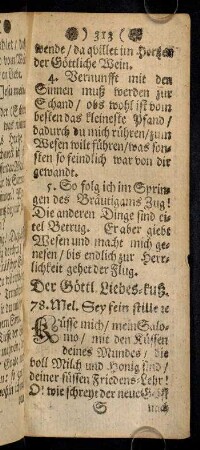 313
wende/ da qvillet im Hertzen
der Göttliche Wein.
4. Vernunfft mit den
Sinnen muß werden zur
Schand/ obs wohl ist vom
besten das kleineste Pfand/
dadurch du mich rühren/ zum
Wesen wilt führen/ was son-
sten so feindlich war von dir
gewandt.
5. So folg ich im Sprin-
gen des Bräutigams Zug!
Die anderen Dinge sind ei-
tel Betrug. Er aber giebt
Wesen und macht mich ge-
nesen/ bis endlich zur Herr-
lichkeit gehet der Flug.
Der Göttl Liebes-kuß.
78. Mel. Sey fein stille ꝛc
Küsse mich/ mein Salo-
mo/ mit den Küssen
deines Mundes/ die
voll Milch und Honig sind/
deiner süssen Friedens-Lehr!
O! wie schreyt der neue
S